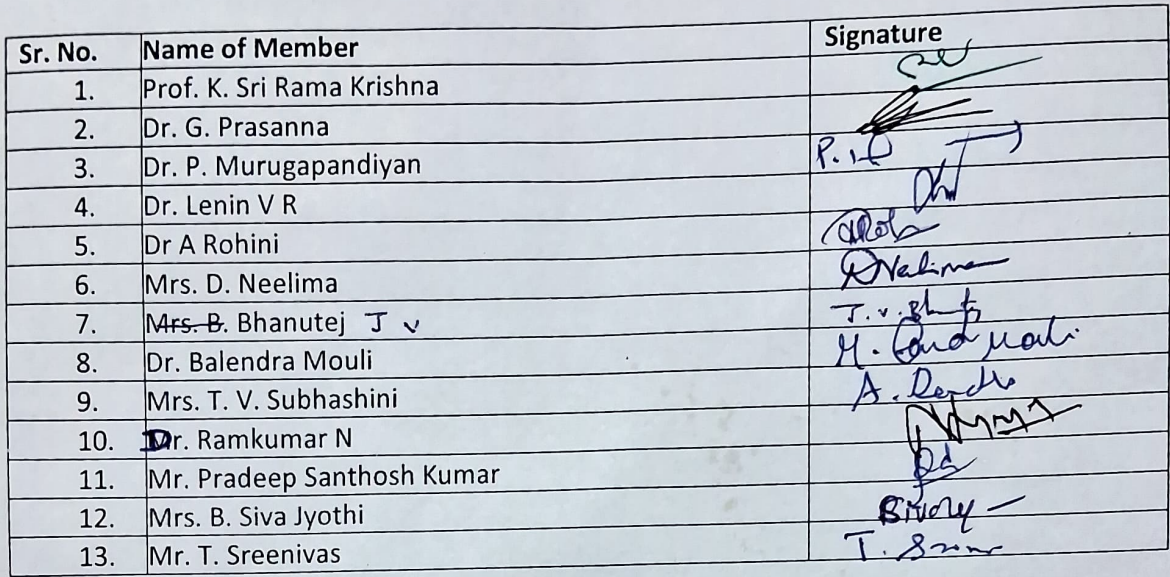 Sr. No. Name of Member Signature
1. Prof. K. Sri Rama Krishna
2. Dr. G. Prasanna
3. Dr. P. Murugapandiyan
4. Dr. Lenin V R
5. Dr A Rohini
6. Mrs. D. Neelima
7. Mrs. B. Bhanutej J V
8. Dr. Balendra Mouli
9. Mrs. T. V. Subhashini
10. Dr. Ramkumar N
11. Mr. Pradeep Santhosh Kumar
12. Mrs. B. Siva Jyothi
13. Mr. T. Sreenivas